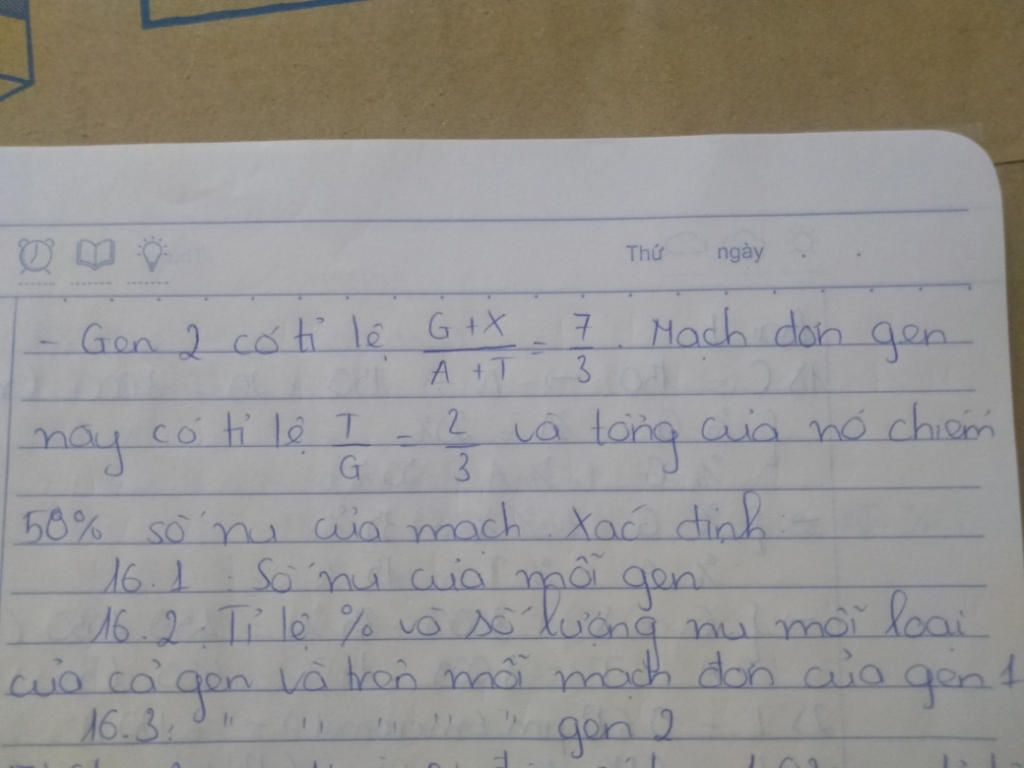 Thứ ngày
- Gen 2 có tỉ lệ G+X / A+T = 7/3. Mạch đơn gen
này có tỉ lệ T/G = 2/3 và tổng của nó chiếm
50% số nu của mạch. Xác định:
16.1: Số nu của mỗi gen
16.2: Tỉ lệ % và số lượng nu mỗi loại
của cả gen và trên mỗi mạch đơn của gen 1
16.3: " " " " " gen 2